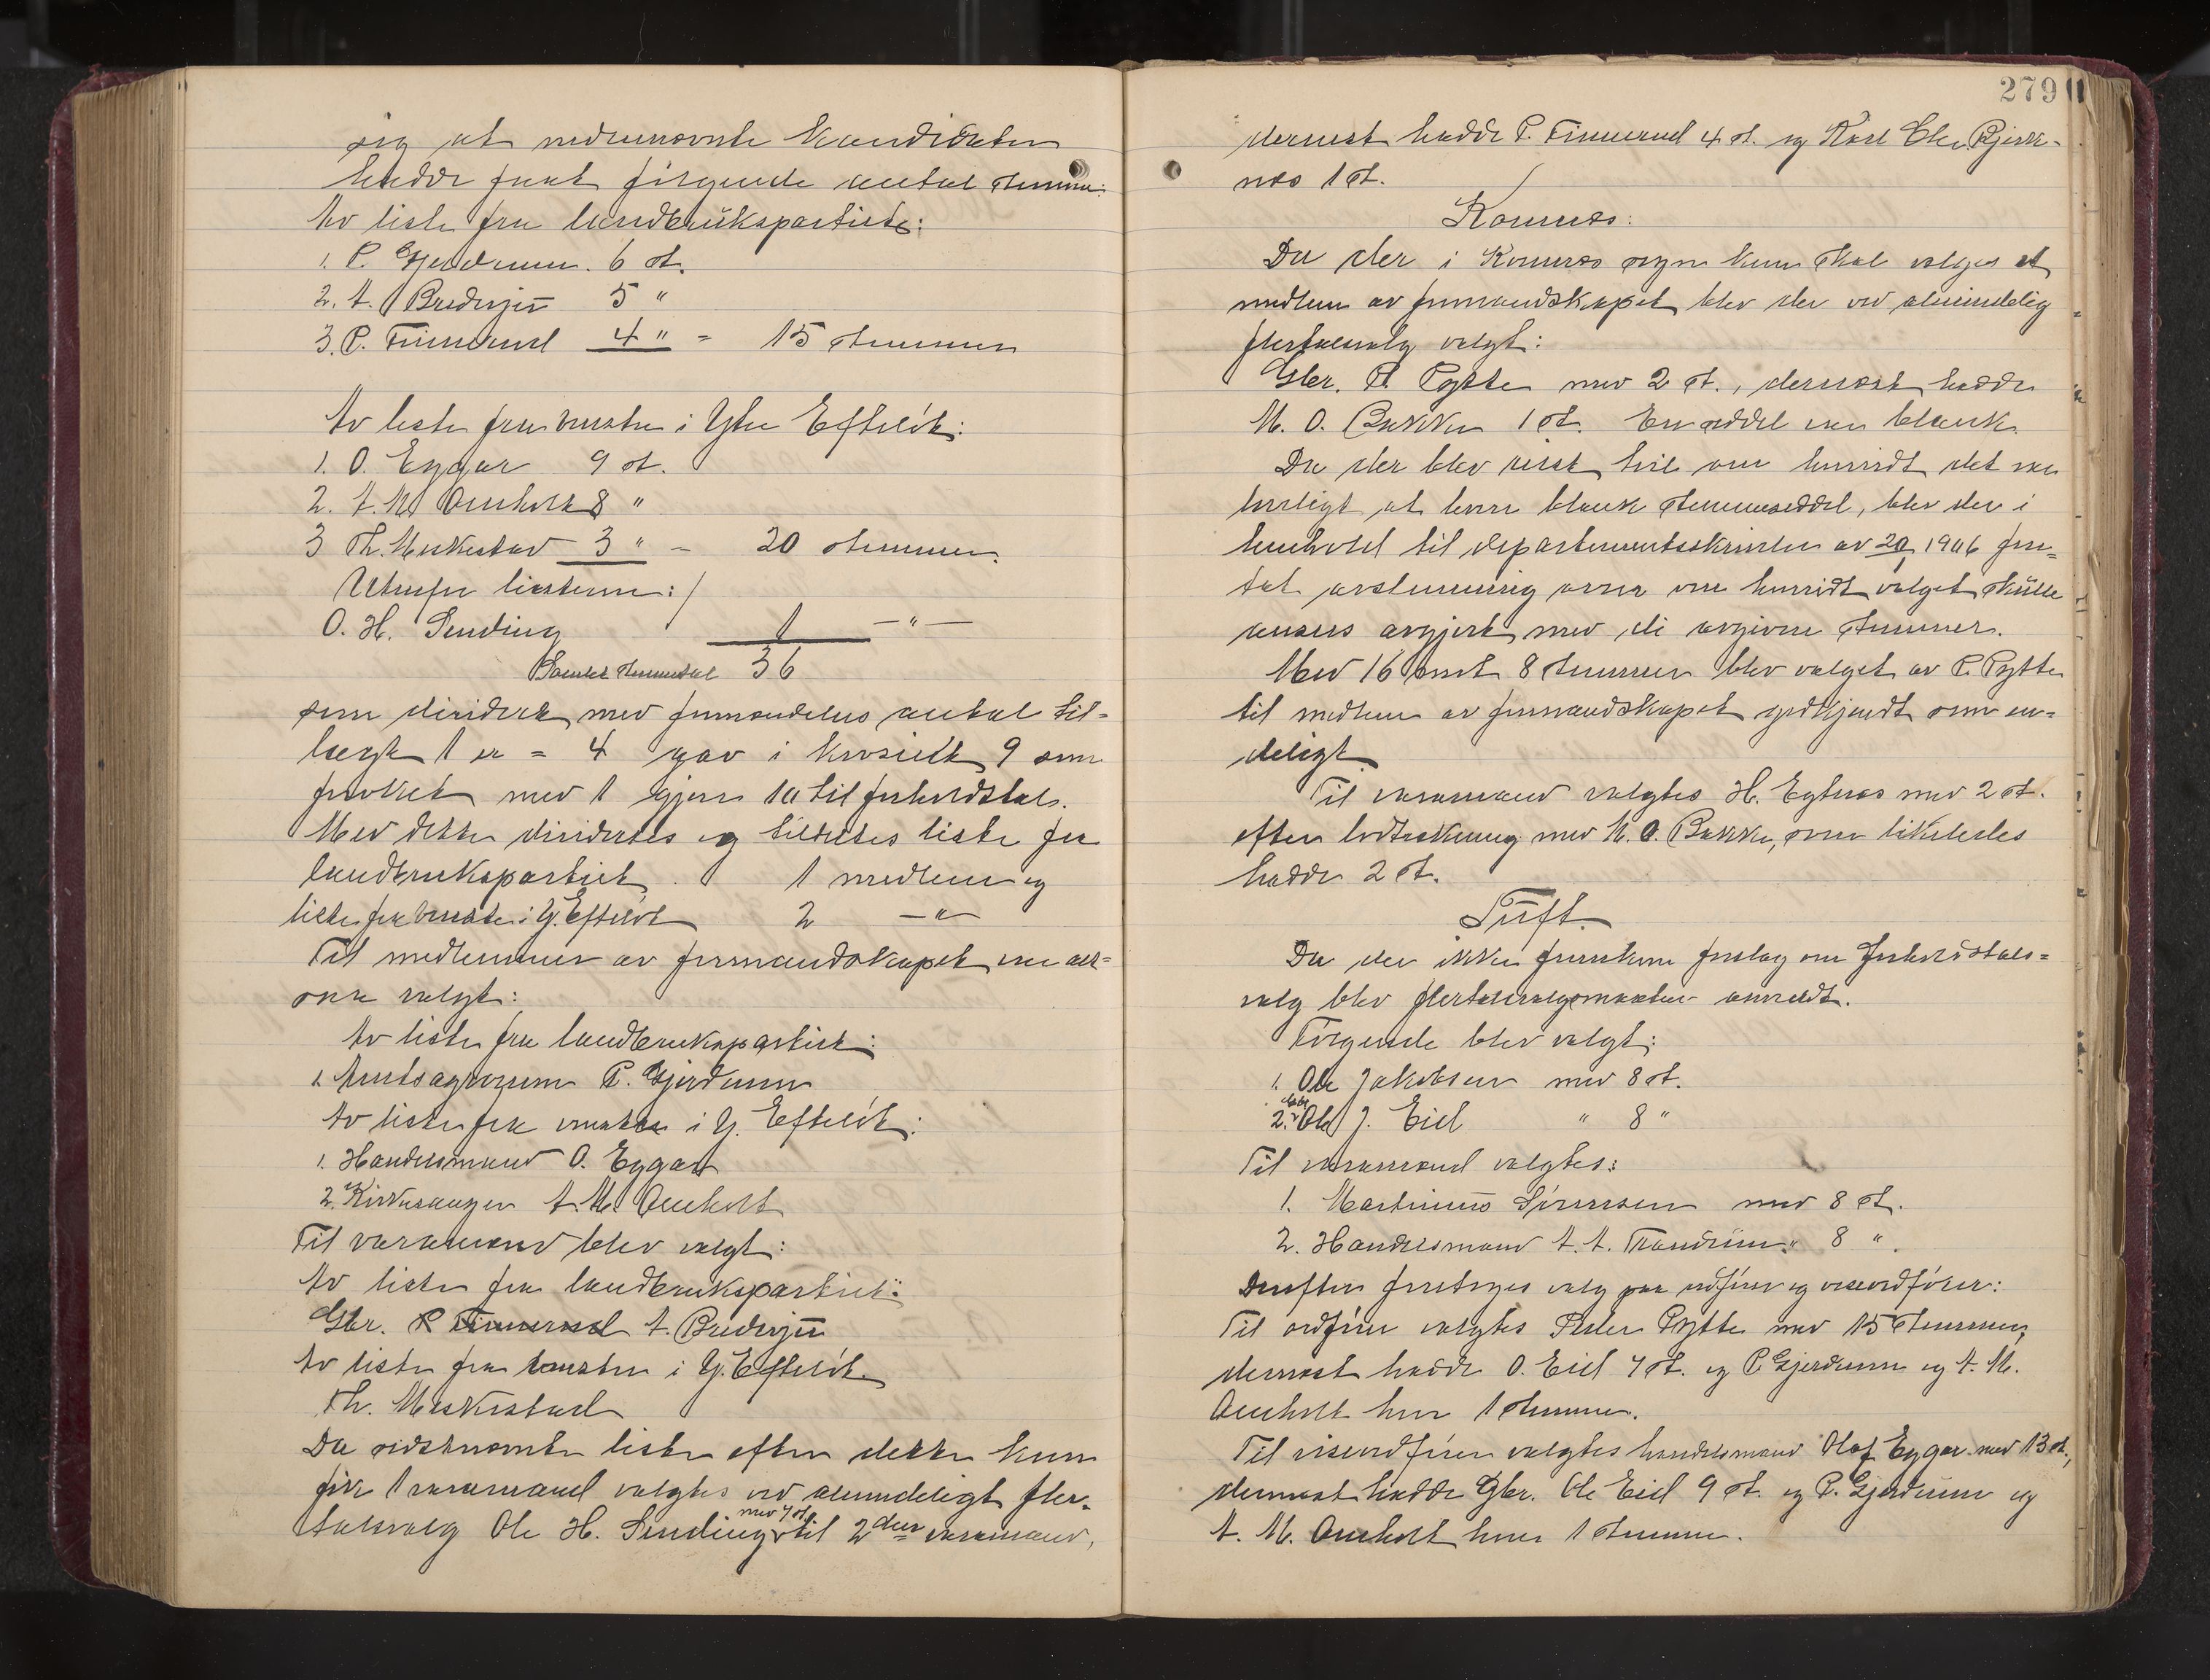 sig at nedennævnte kandidater
hadde faat følgende antal stemmer:
Av liste fra landbrukspartiet:
1. P. Gjerdrum. 6 st.
2. A. Bredesjø 5 "
3. P. Finnerud 4 " = 15 stemmer
Av liste fra venstre i Ytre Efteløt:
1. O. Eggar 9 st.
2. A. M. Omholt 8 "
3 Th. Moskestad 3 " = 20 stemmer.
Utenfor listerne:
O. H. Sending 1 — " —
Samlet stemmetal 36
som divideret med formændenes antal til-
lagt 1 er = 4 gav i kvosient 9 som
forøket med 1 gjør 10 til forholdstal.
Med dette divideredes og tildeltes liste fra
landbrukspartiet 1 medlem og
liste fra venstre i Y. Efteløt 2 — " —
Til medlemmer av formandskapet var alt-
saa valgt:
Av liste fra landbrukspartiet:
1. Amtsagronom P. Gjerdrum
Av liste fra venstre i Y. Efteløt:
1. Handelsmand O. Eggar
2. Kirkesanger A. M. Omholt
Til varamænd blev valgt:
Av liste fra landbrukspartiet:
Gbr. P Finnerud A. Bredesjø
Av liste fra venstre i Y. Efteløt.
Th. Moskestad
Da sidstnævnte liste efter dette kun
fik 1 varamand valgtes ved almindeligt fler-
talsvalg Ole H. Sending med 7 st. til 2den varamand,
279
dernæst hadde P. Finnerud 4 st. og Karl Chr. Bjerk-
næs 1 st.
Komnes:
Da der i Komnes sogn kun skal vælges et
medlem av formandskapet blev der ved almindelig
flertalsvalg valgt:
Gbr. P. Pytte med 2 st., dernæst hadde
M. O. Bakken 1 st. En seddel var blank.
Da der blev reist tvil om hvorvidt det var
lovligt at levere blank stemmeseddel, blev der i
henhold til departementsskrivelse av 20/ 1906 fore-
tat avstemning over om hvorvidt valget skulle
ansees avgjort med de avgivne stemmer.
Med 16 mot 8 stemmer blev valget av P. Pytte
til medlem av formandskapet godkjendt som en-
deligt
Til varamand valgtes H. Egtnæs med 2 st.
efter lodtrekning med M. O. Bakke, som likeledes
hadde 2 st.
Tuft.
Da der ikke fremkom forslag om forholdstals-
valg blev flertalsvalgsmaaten anvendt.
Følgende blev valgt:
1. Ole Jakobsen med 8 st.
2. Gbr. Ole J. Eiel " 8 "
Til varamænd valgtes:
1. Martinius Sørensen med 8 st.
2. Handelsmand A. A. Trandum " 8 ".
Derefter foretoges valg paa ordfører og viseordfører:
Til ordfører valgtes Peder Pytte med 15 stemmer,
dernæst hadde O. Eiel 7 st. og P. Gjerdrum og A. M.
Omholt hver 1 stemme.
Til viseordfører valgtes handelsmand Olaf Eggar med 13 st.,
dernæst hadde Gbr. Ole Eiel 9 st. og P. Gjerdrum og
A. M. Omholt hver 1 stemme.